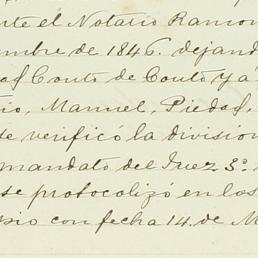 rte el Notario Ramon
mbre de 1846. dejand
Conto de Couto y a
io, Manuel, Piedad,
se verificó la division
mandato del Juez 3º.
se protocolizó en los
sio con fecha 14. de M